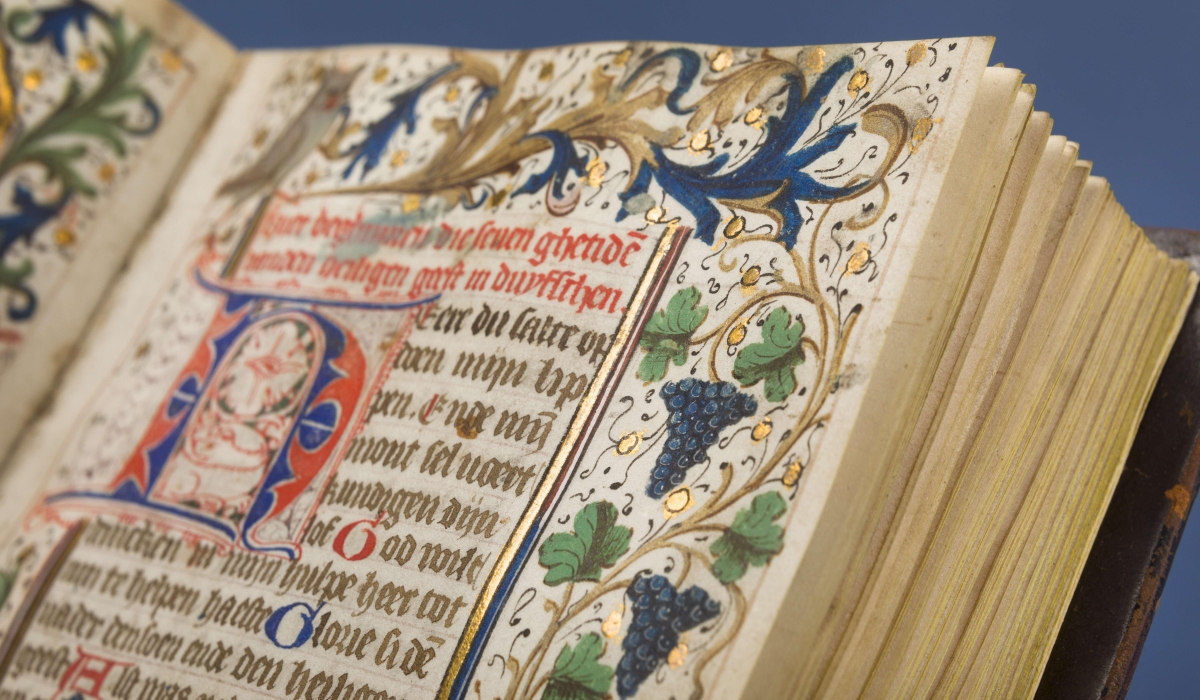 Hier beghinnen die seuen ghetidē
vanden heiligen geest in duytschen.
Here du salte op
doen mijn lip
pen. Ende mij
mont sel uvert
kundigen dijn
lof God wilt
dencken in mijn hulpe heer tot
mij te helpen haeste Glorie si dē
vader den soen ende den heiligen
geest Als